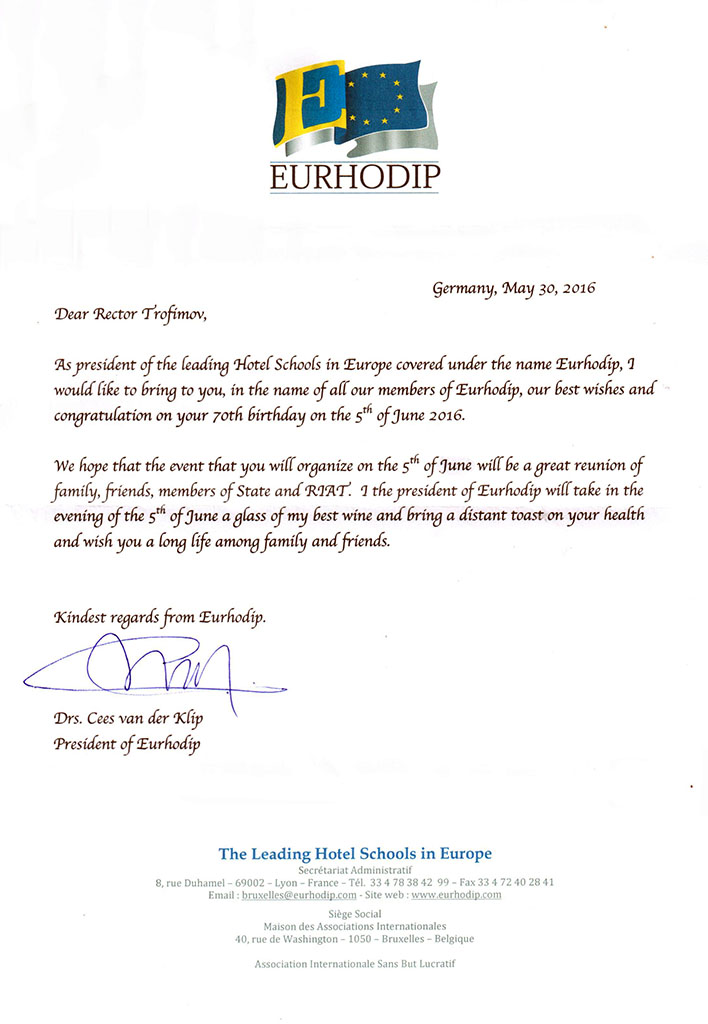 E
EURHODIP
Germany, May 30, 2016
Dear Rector Trofimov,
As president of the leading Hotel Schools in Europe covered under the name Eurhodip, I
would like to bring to you, in the name of all our members of Eurhodip, our best wishes and
congratulation on your 70th birthday on the 5th of June 2016.
We hope that the event that you will organize on the 5th of June will be a great reunion of
family, friends, members of State and RIAT. I the president of Eurhodip will take in the
evening of the 5th of June a glass of my best wine and bring a distant toast on your health
and wish you a long life among family and friends.
Kindest regards from Eurhodip.
Drs. Cees van der Klip
President of Eurhodip
The Leading Hotel Schools in Europe
Secrétariat Administratif
8, rue Duhamel – 69002 – Lyon – France – Tél. 33 4 78 38 42 99 – Fax 33 4 72 40 28 41
Email : bruxelles@eurhodip.com - Site web : www.eurhodip.com
Siège Social
Maison des Associations Internationales
40, rue de Washington – 1050 – Bruxelles – Belgique
Association Internationale Sans But Lucratif